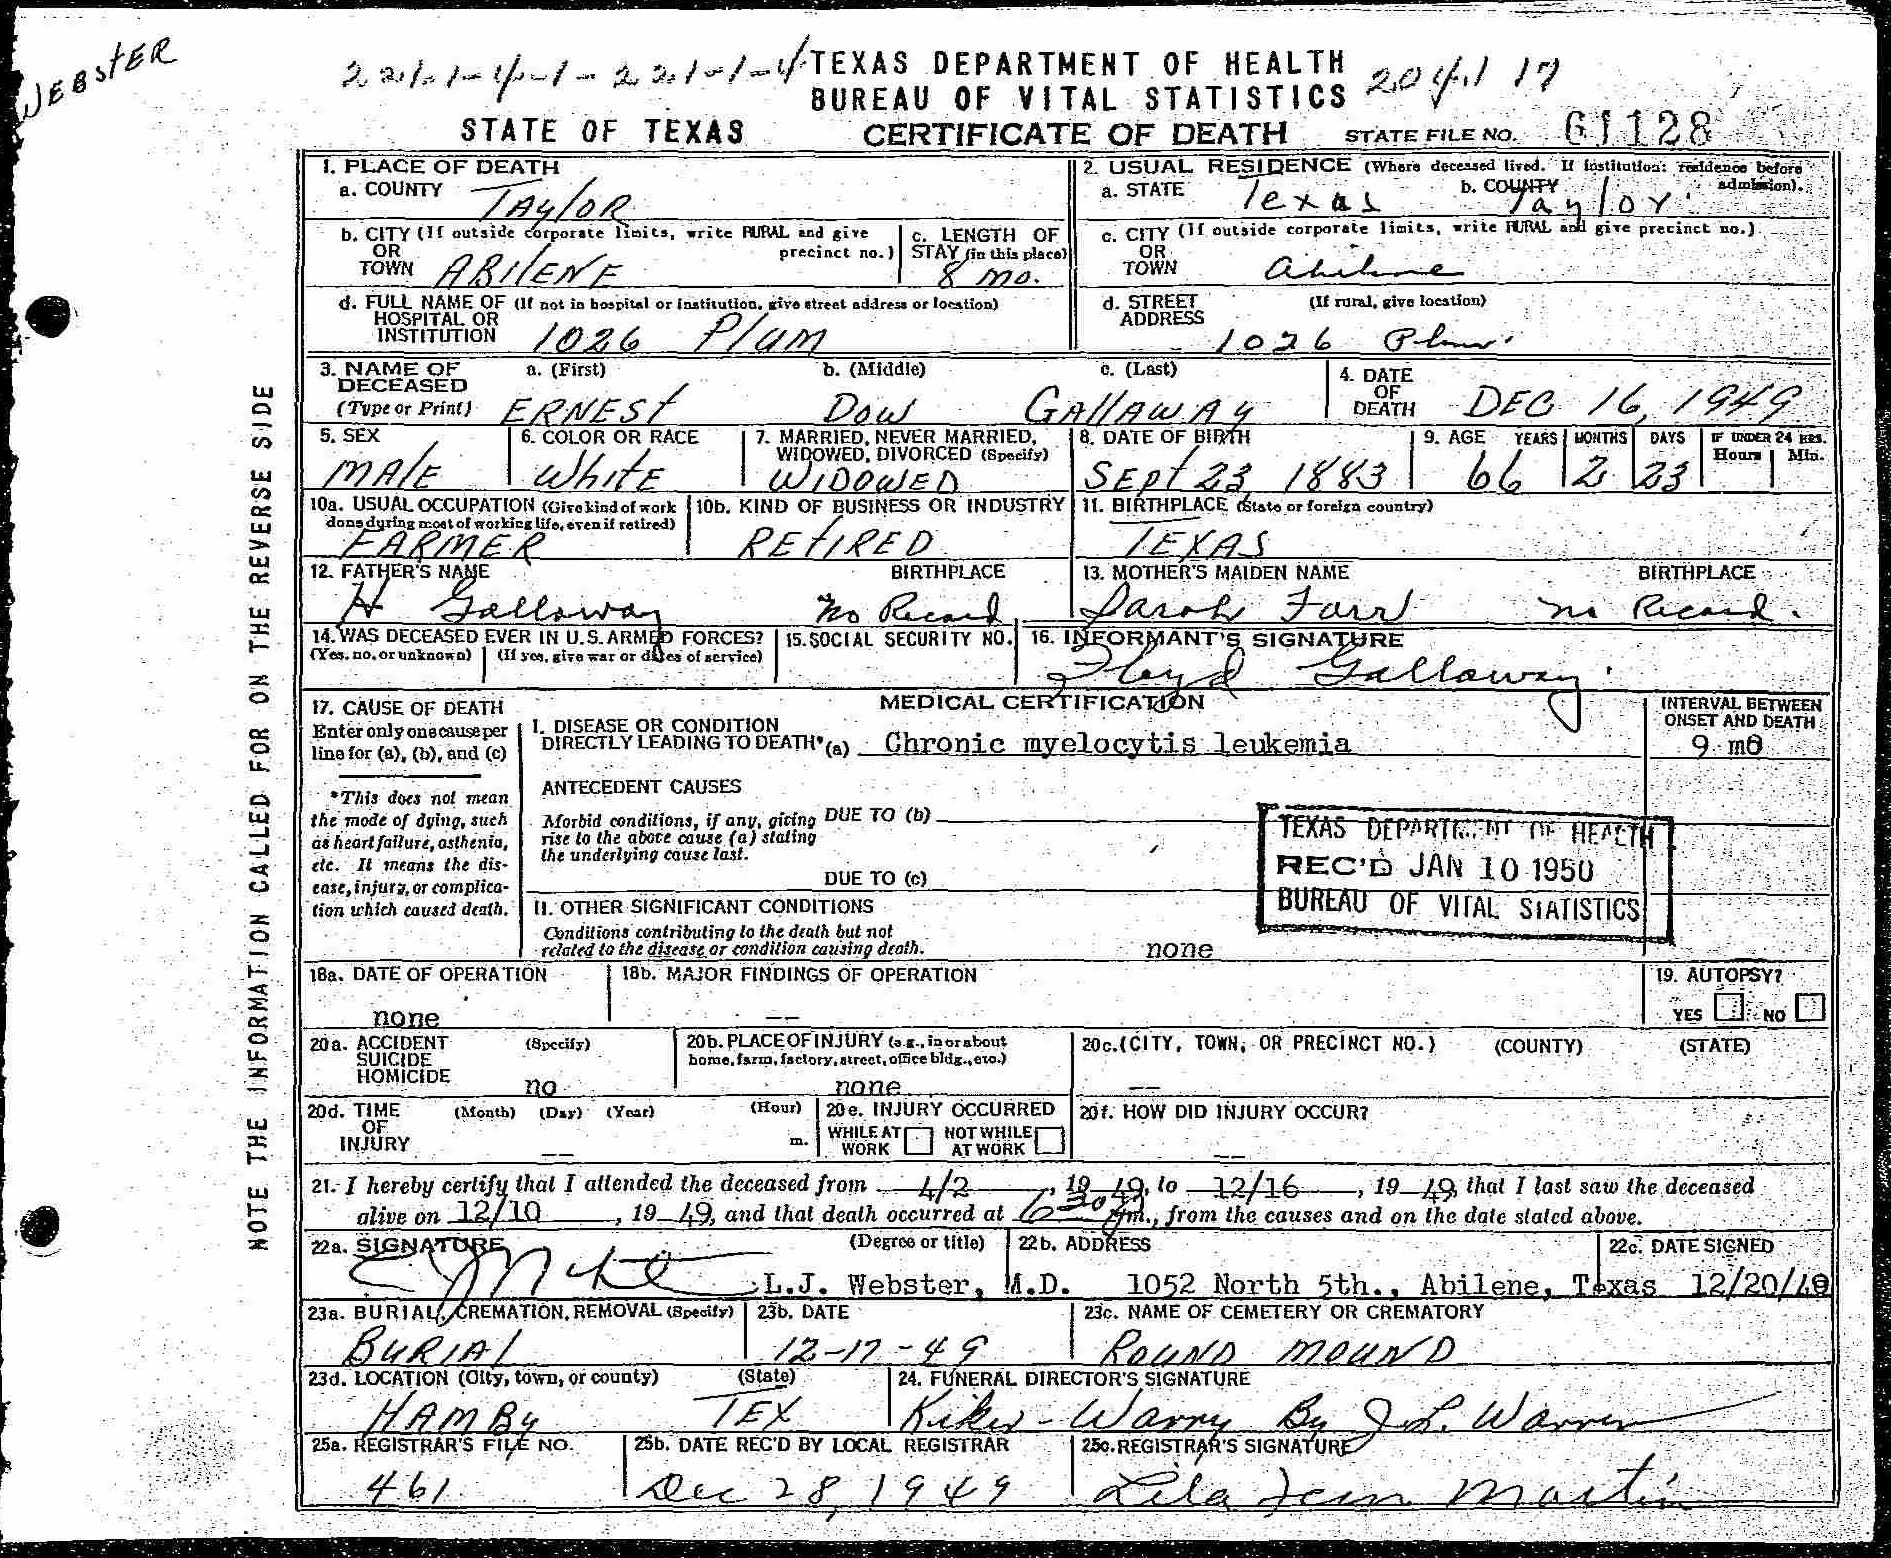 WEBSTER
221-1-4-1-221-1-4 TEXAS DEPARTMENT OF HEALTH 204.1 17
BUREAU OF VITAL STATISTICS
STATE OF TEXAS CERTIFICATE OF DEATH STATE FILE NO. 61128
NOTE THE INFORMATION CALLED FOR ON THE REVERSE SIDE
1. PLACE OF DEATH
a. COUNTY TAYLOR
2. USUAL RESIDENCE (Where deceased lived. If institution: residence before admission).
a. STATE Texas b. COUNTY Taylor
b. CITY (If outside corporate limits, write RURAL and give precinct no.)
OR
TOWN ABILENE
c. LENGTH OF
STAY (in this place)
8 mo.
c. CITY (If outside corporate limits, write RURAL and give precinct no.)
OR
TOWN Abilene
d. FULL NAME OF (If not in hospital or institution, give street address or location)
HOSPITAL OR
INSTITUTION 1026 Plum
d. STREET (If rural, give location)
ADDRESS
1026 Plum
3. NAME OF a. (First) b. (Middle) c. (Last)
DECEASED
(Type or Print) ERNEST DOW GALLAWAY
4. DATE
OF
DEATH DEC 16, 1949
5. SEX
MALE
6. COLOR OR RACE
WHITE
7. MARRIED, NEVER MARRIED,
WIDOWED, DIVORCED (Specify)
WIDOWED
8. DATE OF BIRTH
SEPT 23 1883
9. AGE YEARS MONTHS DAYS IF UNDER 24 HRS.
Hours Min.
66 2 23
10a. USUAL OCCUPATION (Give kind of work
done during most of working life, even if retired)
FARMER
10b. KIND OF BUSINESS OR INDUSTRY
RETIRED
11. BIRTHPLACE (State or foreign country)
TEXAS
12. FATHER'S NAME BIRTHPLACE
H Galloway No Record
13. MOTHER'S MAIDEN NAME BIRTHPLACE
Sarah Farr No Record.
14. WAS DECEASED EVER IN U.S. ARMED FORCES?
(Yes, no, or unknown) (If yes, give war or dates of service)
15. SOCIAL SECURITY NO.
16. INFORMANT'S SIGNATURE
Floyd Gallaway
MEDICAL CERTIFICATION
17. CAUSE OF DEATH
Enter only one cause per
line for (a), (b), and (c)
*This does not mean
the mode of dying, such
as heart failure, asthenia,
etc. It means the dis-
ease, injury, or complica-
tion which caused death.
I. DISEASE OR CONDITION
DIRECTLY LEADING TO DEATH* (a) Chronic myelocytis leukemia
INTERVAL BETWEEN
ONSET AND DEATH
9 mo
ANTECEDENT CAUSES
Morbid conditions, if any, giving DUE TO (b)
rise to the above cause (a) stating
the underlying cause last.
DUE TO (c)
TEXAS DEPARTMENT OF HEALTH
REC'D JAN 10 1950
BUREAU OF VITAL STATISTICS
II. OTHER SIGNIFICANT CONDITIONS
Conditions contributing to the death but not
related to the disease or condition causing death. none
18a. DATE OF OPERATION
none
18b. MAJOR FINDINGS OF OPERATION
--
19. AUTOPSY?
YES NO
20a. ACCIDENT (Specify)
SUICIDE
HOMICIDE
no
20b. PLACE OF INJURY (e.g., in or about
home, farm, factory, street, office bldg., etc.)
none
20c. (CITY, TOWN, OR PRECINCT NO.) (COUNTY) (STATE)
--
20d. TIME (Month) (Day) (Year) (Hour)
OF
INJURY -- m.
20e. INJURY OCCURRED
WHILE AT NOT WHILE
WORK AT WORK
20f. HOW DID INJURY OCCUR?
--
21. I hereby certify that I attended the deceased from 4/2, 19 49, to 12/16, 19 49, that I last saw the deceased
alive on 12/10, 19 49, and that death occurred at 6 30 Pm., from the causes and on the date stated above.
22a. SIGNATURE (Degree or title)
L.J. Webster, M.D.
22b. ADDRESS
1052 North 5th., Abilene, Texas
22c. DATE SIGNED
12/20/49
23a. BURIAL, CREMATION, REMOVAL (Specify)
BURIAL
23b. DATE
12-17-49
23c. NAME OF CEMETERY OR CREMATORY
ROUND MOUND
23d. LOCATION (City, town, or county) (State)
HAMBY TEX
24. FUNERAL DIRECTOR'S SIGNATURE
Kiker - Warry By J.L. Warren
25a. REGISTRAR'S FILE NO.
461
25b. DATE REC'D BY LOCAL REGISTRAR
Dec 28, 1949
25c. REGISTRAR'S SIGNATURE
Lila Jean Martin